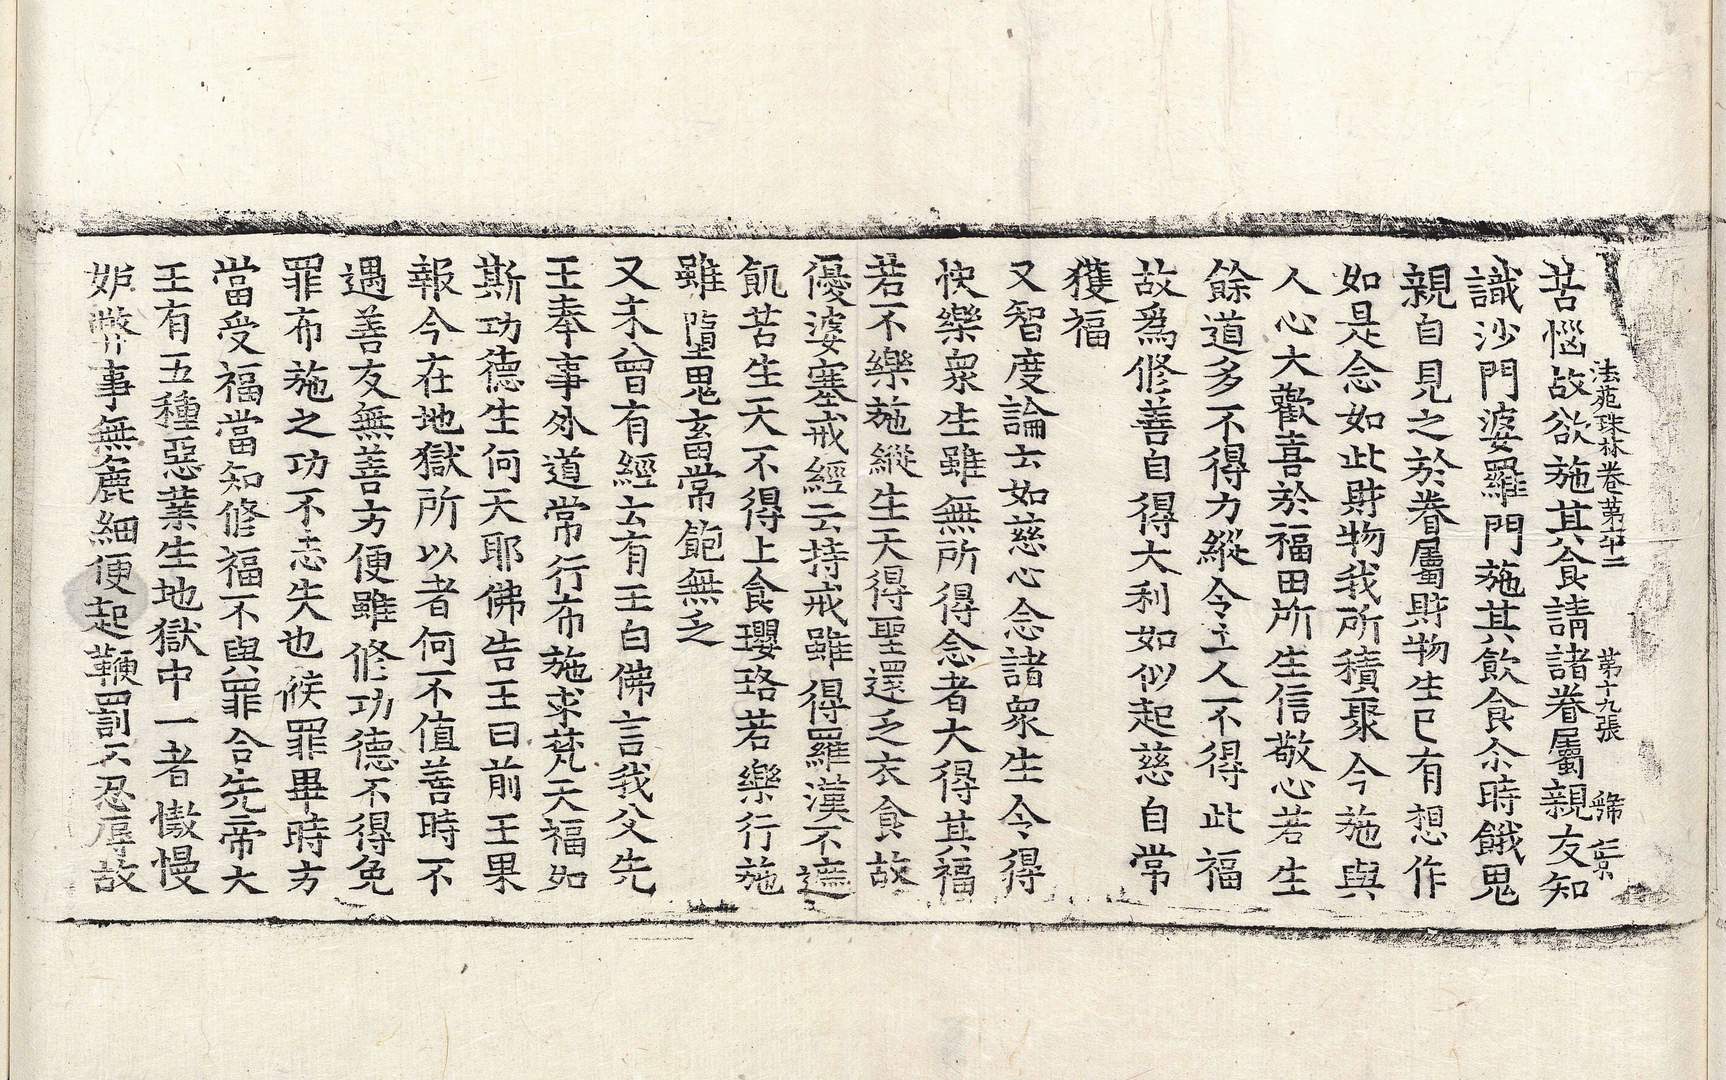 法苑珠林卷第六十二　第十九張　歸
苦惱故欲施其食請諸眷屬親友知
識沙門婆羅門施其飲食尒時餓鬼
親自見之於眷屬財物生已有想作
如是念如此財物我所積聚今施與
人心大歡喜於福田所生信敬心若生
餘道多不得力縱令立人不得此福
故爲修善自得大利如似起慈自常
獲福
又智度論云如慈心念諸衆生令得
快樂衆生雖無所得念者大得其福
若不樂施縱生天得聖還乏衣食故
優婆塞戒經云持戒雖得羅漢不遮
飢苦生天不得上食瓔珞若樂行施
雖墮鬼畜常飽無乏
又未曾有經云有王白佛言我父先
王奉事外道常行布施求梵天福如
斯功德生何天耶佛告王曰前王果
報今在地獄所以者何不值善時不
遇善友無善方便雖修功德不得免
罪布施之功不忘失也候罪畢時方
當受福當知修福不與罪合先帝大
王有五種惡業生地獄中一者憿慢
妬弊事無麁細便起鞭罰不忍辱故